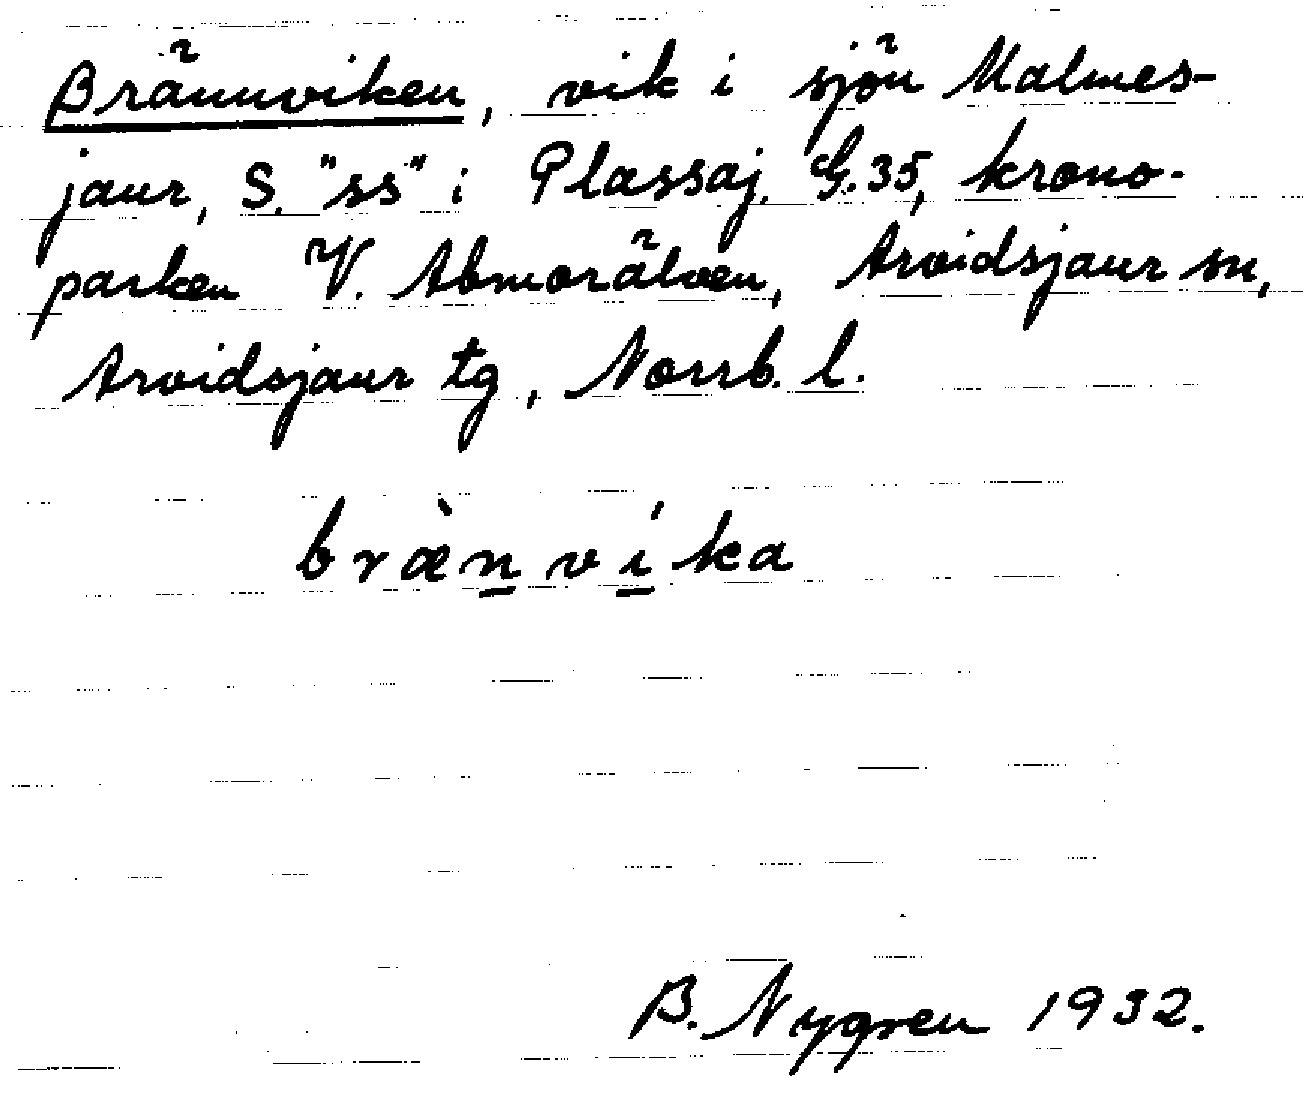 Brännviken, vik i sjön Malmes-
jaur, S. "ss" i Plassaj. G.35, krono-
parken V. Abmorälven, Arvidsjaur sn,
Arvidsjaur tg, Norrb. l.
bræ̀nvíka
B. Nygren 1932.